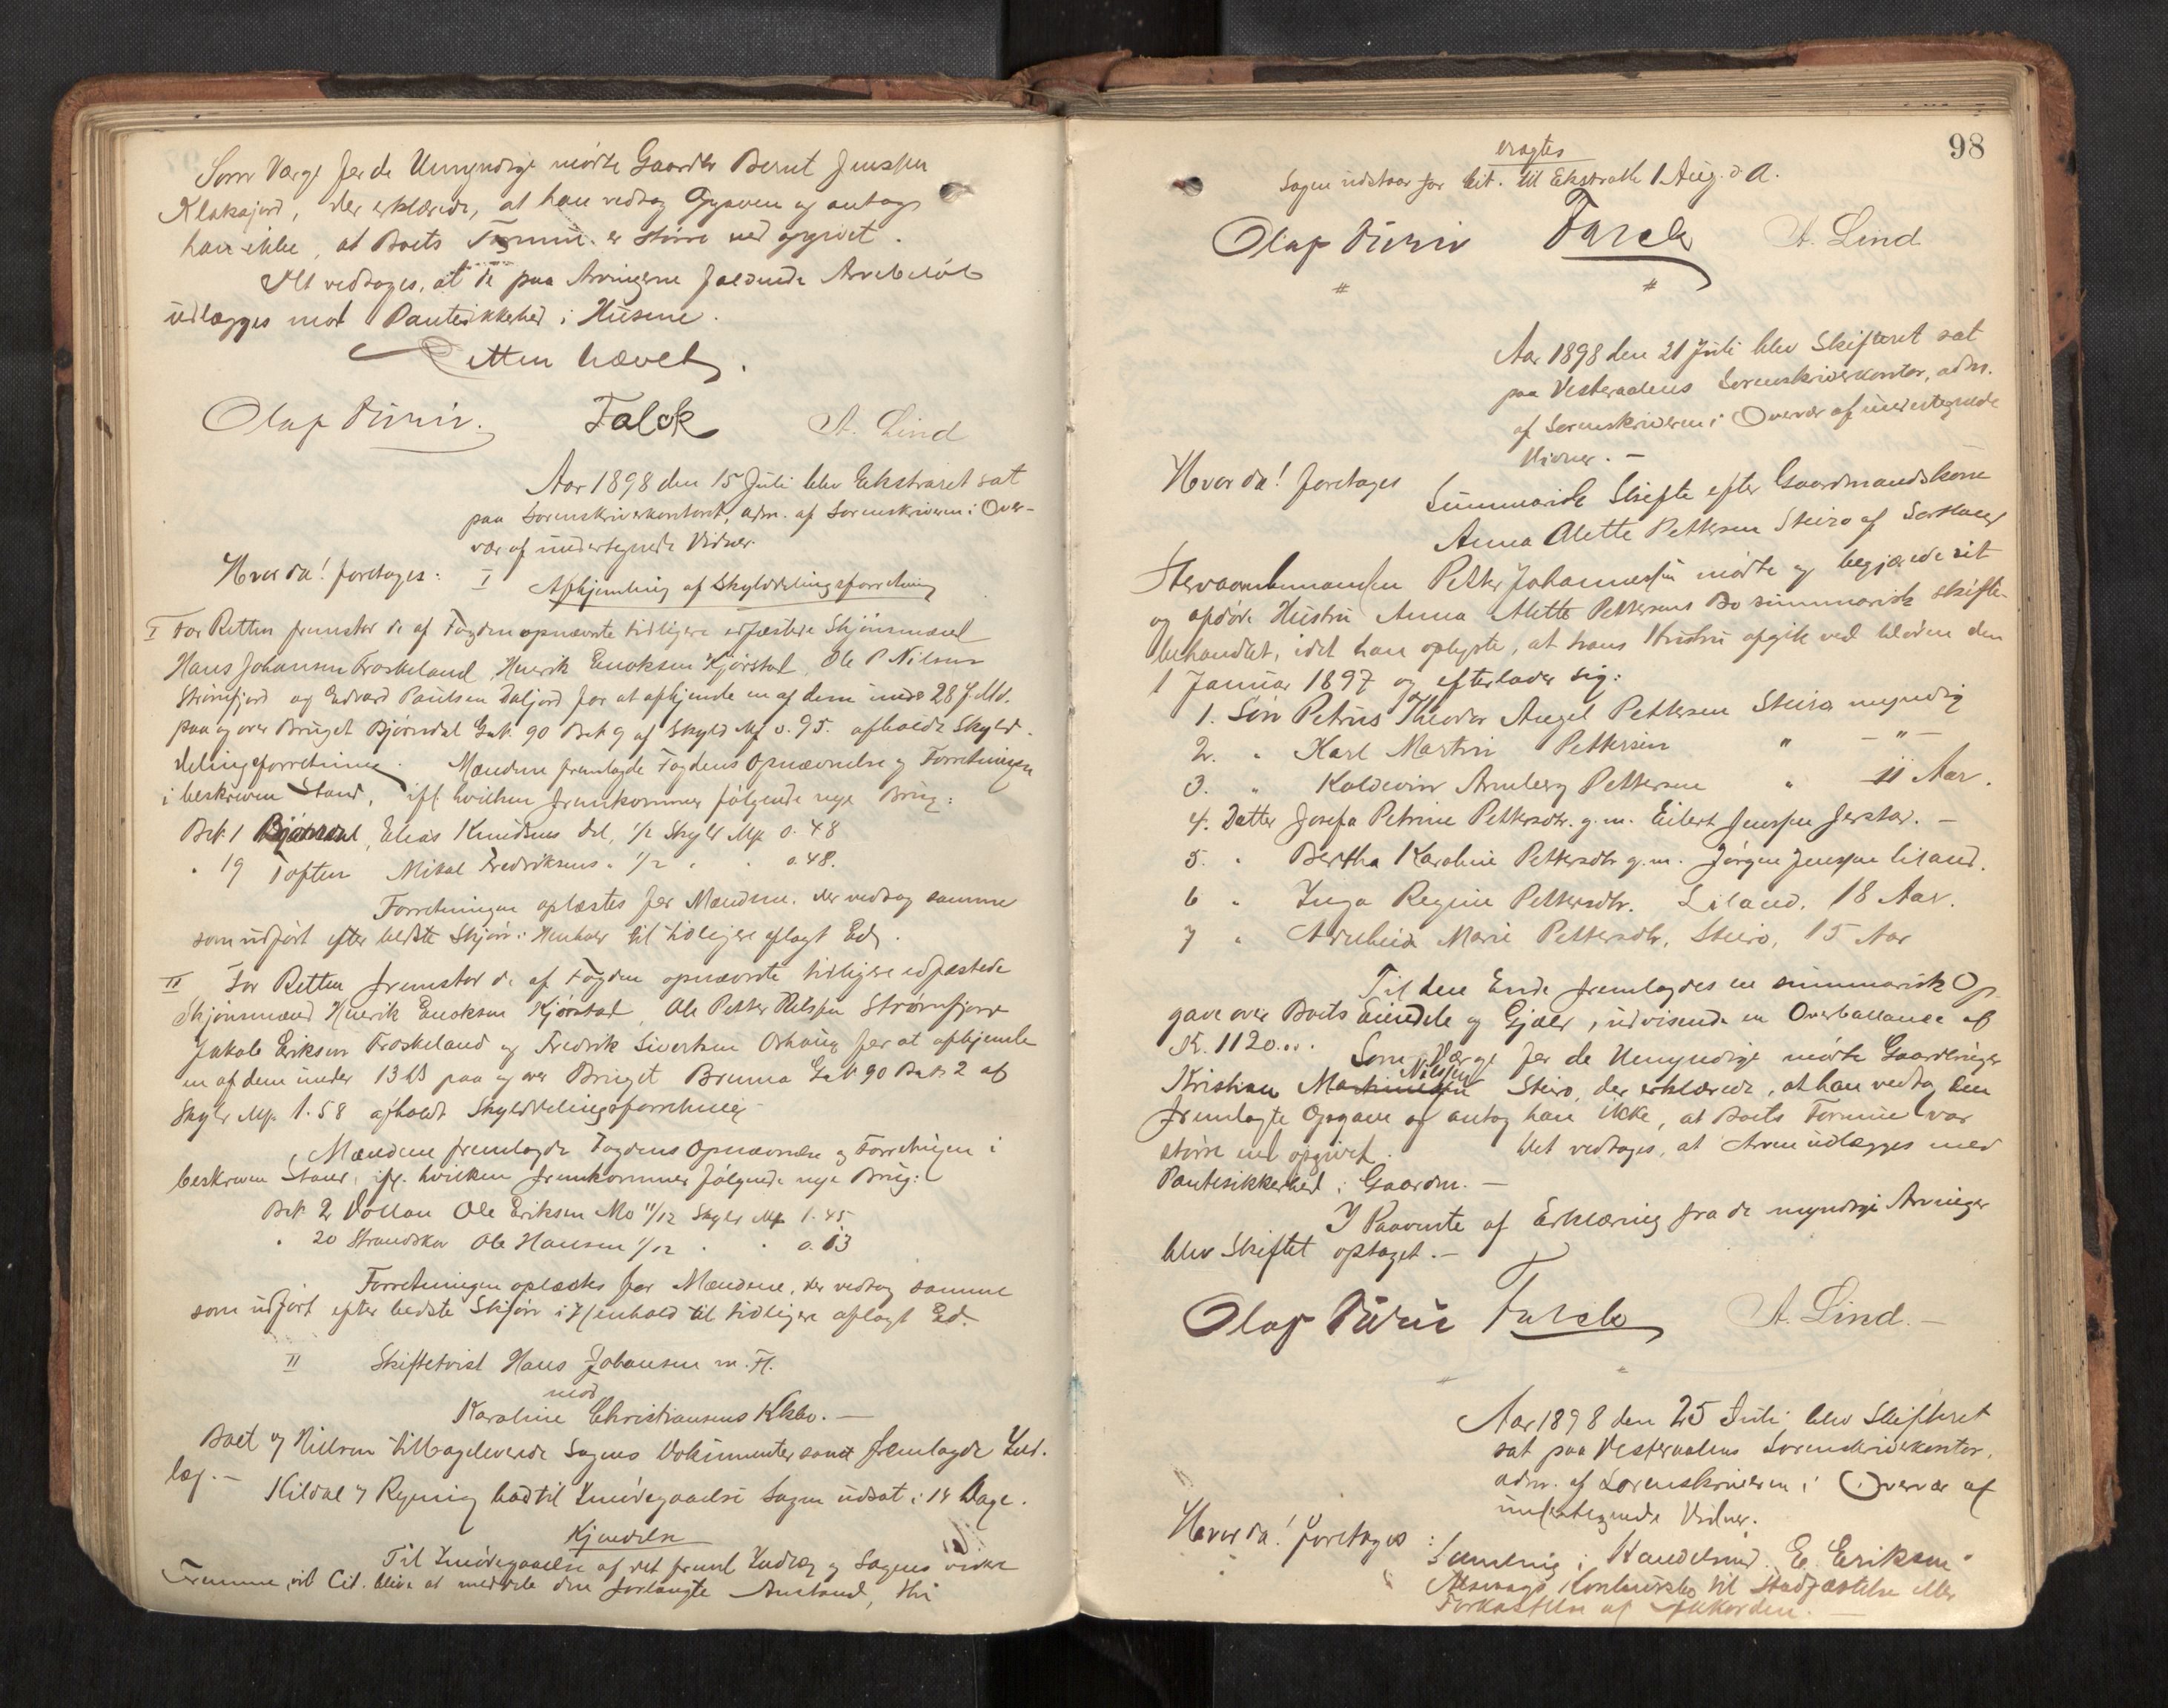 Som Værge for de Umyndige mødte Gaardbr Bernt Jenssen
Klaksjord, der erklærede, at han vedtog Opgaven og antog
han ikke, at Boets Formue er større end opgivet.
Det vedtoges, at de paa Arvingerne faldende Arvebeløb
udlægges mod Pantesikkerhed i Husene.
Retten hævet.
Olaf Falck A. Lind
Aar 1898 den 15 Juli blev Ekstraret sat
paa Sorenskriverkontoret, adm. af Sorenskriveren i Over-
vær af undertegnede Vidner.
Hvor da! foretages: I Afhjemling af Skylddelingsforretning
I For Retten fremstod de af Fogden opnævnte tidligere edfæstede Skjønsmænd
Hans Johansen Froskeland, Henrik Enoksen Kjørstad, Ole P Nilsen
Strømfjord og Edvard Paulsen Daljord for at afhjemle en af dem under 28 f. Md.
paa og over Bruget Bjørndal G.No. 90 B.No 9 af Skyld Mk 0.95. afholdt Skyld-
delingsforretning. Mændene fremlagde Fogdens Opnævnelse og Forretningen
i beskreven Stand, ifl. hvilken fremkommer følgende nye Brug:
B.No 1 Bjørndal, Elias Knudsens Del, 1/2 Skyld Mk 0.48
" 19 Toften Mikal Fredriksens " 1/2 " " 0.48.
Forretningen oplæstes for Mændene, der vedtog samme
som udført efter bedste Skjøn i Henhold til tidligere aflagt Ed.
II For Retten fremstod de af Fogden opnævnte tidligere edfæstede
Skjønsmænd Henrik Enoksen Kjørstad, Ole Petter Nilssen Strømfjord
Jakob Eriksen Froskeland og Fredrik Sivertsen Oshaug for at afhjemle
en af dem under 13 ds paa og over Bruget Bruma G.No 90 B.No 2 af
Skyld Mk. 1.58 afholdt Skylddelingsforretning
Mændene fremlagde Fogdens Opnævnelse og Forretningen i
beskreven Stand, ifl. hvilken fremkommer følgende nye Brug:
B.No 2 Vollan Ole Eriksen Mo 11/12 Skyld Mk 1.45
" 20 Strandskor Ole Hansen 1/12 " " 0.13
Forretningen oplæstes for Mændene, der vedtog samme
som udført efter bedste Skjøn i Henhold til tidligere aflagt Ed.
II Skiftetvist Hans Johansen m. Fl.
mod
Karoline Christiansens Kkbo. —
Boet v/ Nielsen tilbageleverede Sagens Dokumenter samt fremlagde Ind-
læg. — Kildal v/ Rynnig bad til Imødegaaelse Sagen udsat i 14 Dage.
Kjendelse
Til Imødegaaelse af det freml. Indlæg og Sagens videre
Fremme vil Cit. blive at meddele den forlangte Anstand, thi
98
eragtes
Sagen udstaar for Cit. til Ekstrath 1 Aug. d. A.
Olaf Falck A. Lind
" "
Aar 1898 den 21 Juli blev Skifteret sat
paa Vesteraalens Sorenskriverkontor, adm.
af Sorenskriveren i Overvær af undertegnede
Vidner. —
Hvor da! foretages Summarisk Skifte efter Gaardmandskone
Anna Alette Pettersen Steiro af Sortland
Petter Johannessen mødte og begjærede sit
og afdøde Hustru Anna Alette Pettersens Bo summarisk skifte-
behandlet, idet han oplyste, at hans Hustru afgik ved Døden den
1 Januar 1897 og efterlader sig:
1. Søn Petrus Theodor Angel Pettersen Steiro myndig
2. " Karl Martin Pettersen " — " —
3. " Koldevin Arnberg Pettersen " 11 Aar.
4. Datter Josefa Petrine Pettersdtr. g.m. Eilert Jenssen Jerstad. —
5. " Bertha Karoline Pettersdtr g.m. Jørgen Jenssen Liland.
6 " Inga Regine Pettersdtr. Liland, 18 Aar.
7 " Marie Pettersdtr, Steiro, 15 Aar
Til den Ende fremlagdes en summarisk Op-
gave over Boets Eiendele og Gjæld, udvisende en Overballance af
K. 1120... Som Værge for de Umyndige mødte Gaardbruger
Kristian Nilssen Steiro, der erklærede, at han vedtog den
fremlagte Opgave og antog han ikke, at Boets Formue var
større end opgivet. Det vedtoges, at Arven udlægges mod
Pantesikkerhed i Gaarden. —
I Paavente af Erklæring fra de myndige Arvinger
blev Skiftet optaget. —
Olaf Falck A. Lind. —
Aar 1898 den 25 Juli blev Skifteret
sat paa Vesteraalens Sorenskriverkontor,
adm. af Sorenskriveren i Overvær af
undertegnede Vidner.
Hvor da! foretages: Samling i Handelsmd. E. Eriksen
Konkursbo til Stadfæstelse eller
Forkastelse af Akkorden. —